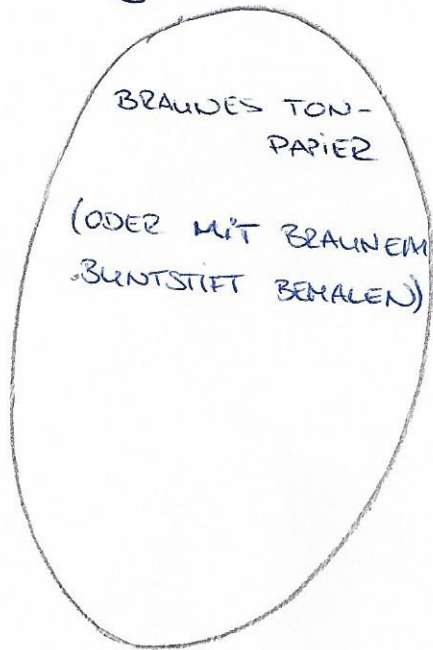 BRAUNES TON-
PAPIER
(ODER MIT BRAUNEM
BUNTSTIFT BEMALEN)